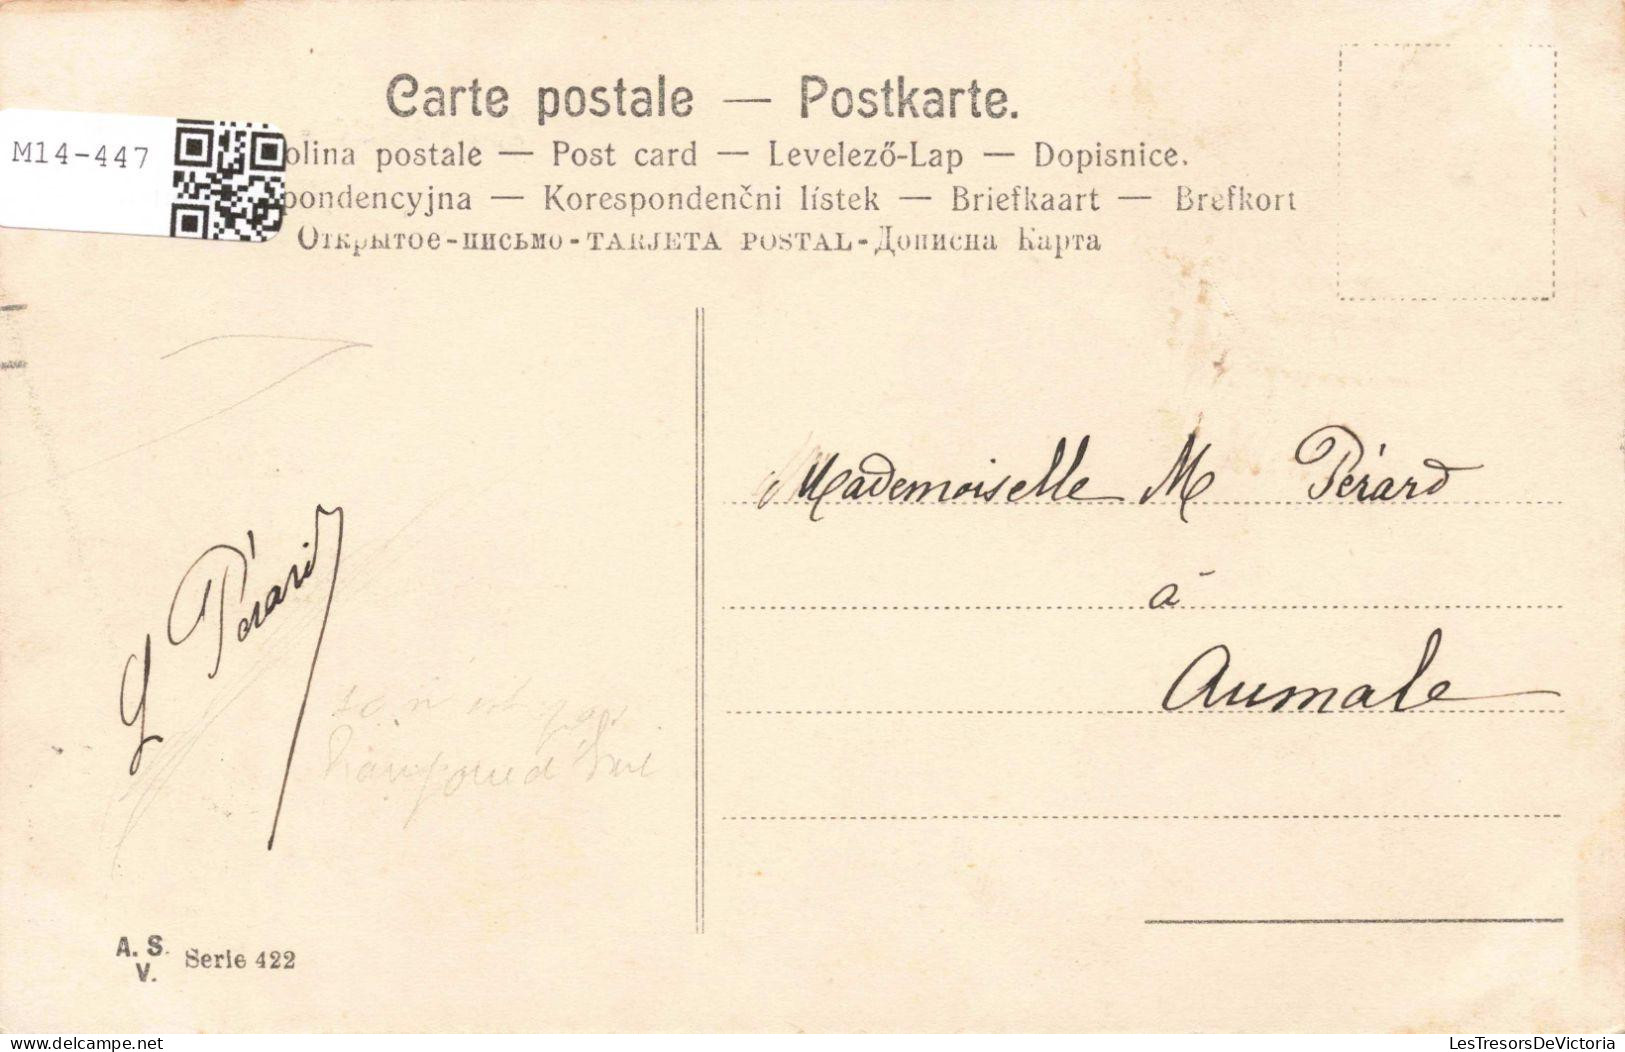 Carte postale — Postkarte.
M14-447
olina postale — Post card — Levelező-Lap — Dopisnice.
pondencyjna — Korespondenčni lístek — Briefkaart — Brefkort
Открытое-письмо-TARJETA POSTAL-Дописна Карта
Mademoiselle M Pérard
à
Aumale
G Pérard
A. S.
V. Serie 422
delcampe.net
LesTresorsDeVictoria